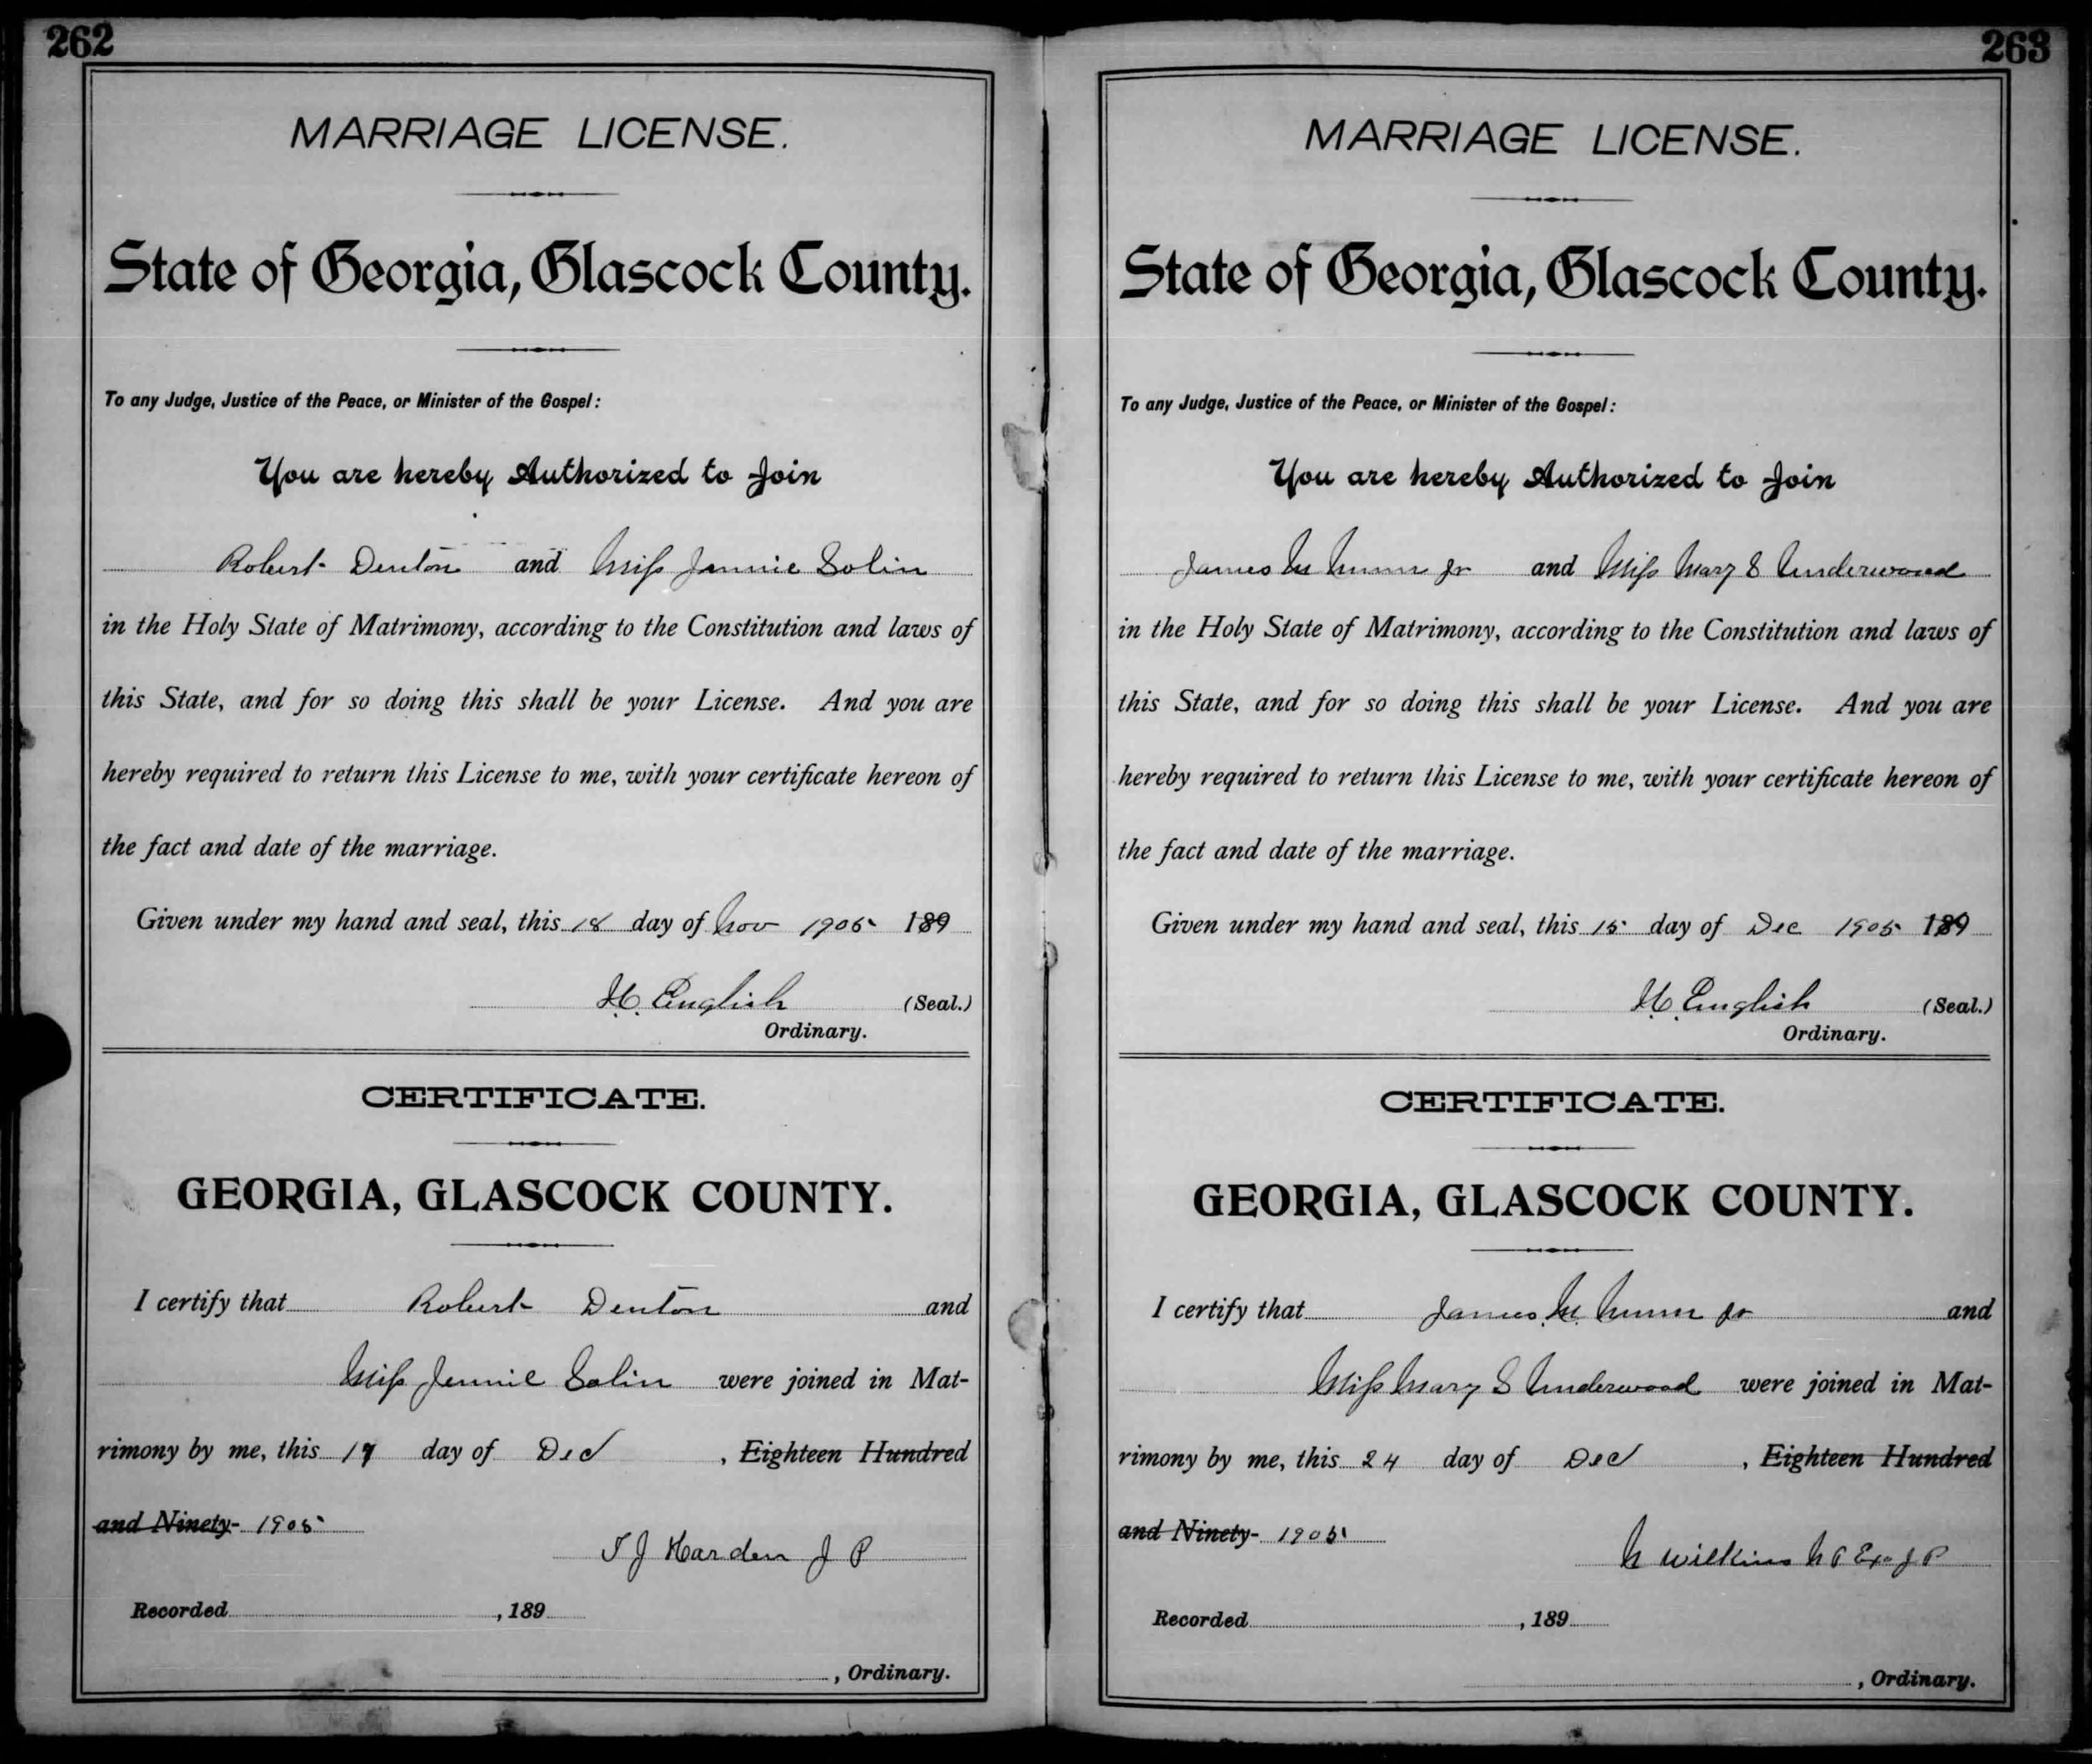 262
MARRIAGE LICENSE.
State of Georgia, Glascock County.
To any Judge, Justice of the Peace, or Minister of the Gospel:
You are hereby Authorized to Join
Robert Denton and Miss Jennie Solin
in the Holy State of Matrimony, according to the Constitution and laws of
this State, and for so doing this shall be your License. And you are
hereby required to return this License to me, with your certificate hereon of
the fact and date of the marriage.
Given under my hand and seal, this 18 day of Nov 1905 189
H. English (Seal.)
Ordinary.
CERTIFICATE.
GEORGIA, GLASCOCK COUNTY.
I certify that Robert Denton and
Miss Jennie Solin were joined in Mat-
rimony by me, this 17 day of Dec , Eighteen Hundred
and Ninety- 1905
T J Harden J P
Recorded , 189
, Ordinary.
263
MARRIAGE LICENSE.
State of Georgia, Glascock County.
To any Judge, Justice of the Peace, or Minister of the Gospel:
You are hereby Authorized to Join
James M Nunn Jr and Miss Mary S Underwood
in the Holy State of Matrimony, according to the Constitution and laws of
this State, and for so doing this shall be your License. And you are
hereby required to return this License to me, with your certificate hereon of
the fact and date of the marriage.
Given under my hand and seal, this 15 day of Dec 1905 189
H. English (Seal.)
Ordinary.
CERTIFICATE.
GEORGIA, GLASCOCK COUNTY.
I certify that James M. Nunn Jr and
Miss Mary S Underwood were joined in Mat-
rimony by me, this 24 day of Dec , Eighteen Hundred
and Ninety- 1905
N Wilkins N P Ex J P
Recorded , 189
, Ordinary.